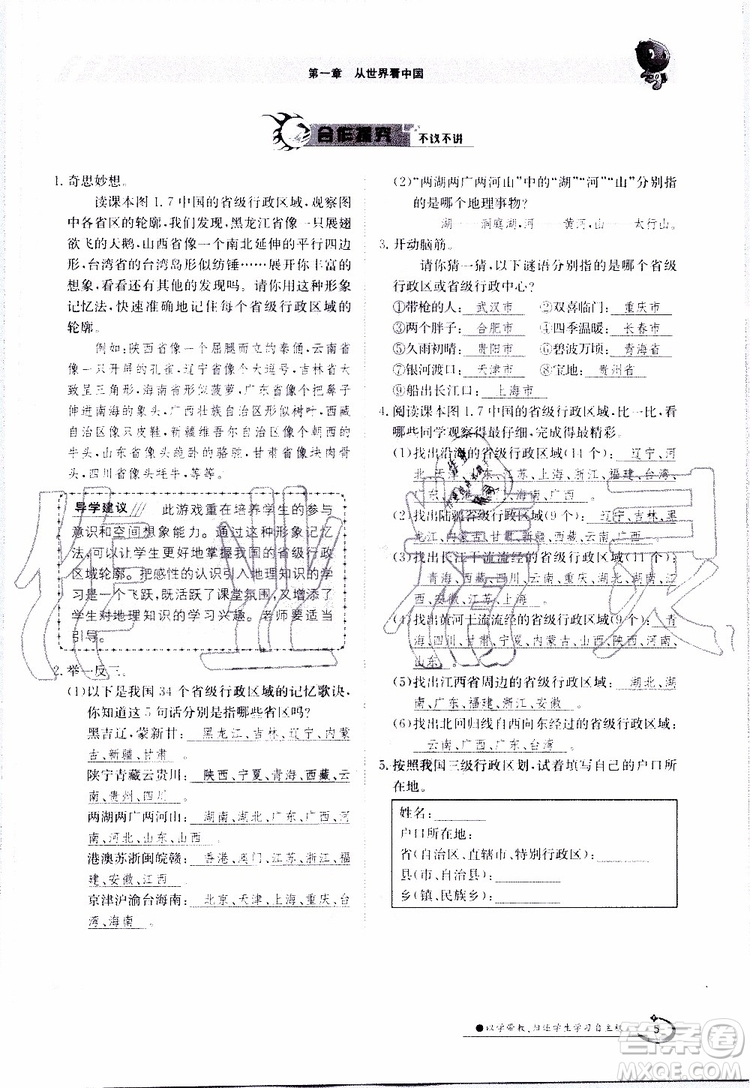 第一章　从世界看中国
合作探究　不议不讲
1. 奇思妙想。
读课本图1.7中国的省级行政区域,观察图
中各省区的轮廓。我们发现,黑龙江省像一只展翅
欲飞的天鹅,山西省像一个南北延伸的平行四边
形,台湾省的台湾岛形似纺锤……展开丰富的想
象,看看它们像什么?请你用这种形象记
忆法,快速准确地记住每个省级行政区域的
轮廓。
例如:陕西省像一个屈腿而立的秦俑,云南省
像一只开屏的孔雀,辽宁省像个大逗号,吉林省大
致呈三角形,海南省像形似菠萝,广东省像个把鼻子
伸进大海的象头,广西壮族自治区像树叶,西藏
自治区像只皮鞋,新疆维吾尔自治区像牛
头,内蒙古自治区像正跪卧的骆驼,甘肃省像个哑
铃,四川省像头牦牛,等等。
导学建议 此游戏重在培养学生的参与
意识和空间想象能力。通过这种形象记忆
法,可以让学生更好地掌握我国的省级行政
区域轮廓。把感性的认识引入地理知识的学
习是一个飞跃,既活跃了课堂氛围,也增加了
学生对地理知识的学习兴趣。老师要适当
引导。
2. 举一反三。
(1)以下是我国34个省级行政区域的记忆歌诀,
你知道这5句话分别是指哪些省区吗?
黑吉辽,蒙新甘: 黑龙江、吉林、辽宁、内蒙
古、新疆、甘肃 。
陕宁青藏云贵川: 陕西、宁夏、青海、西藏、云
南、贵州、四川 。
两湖两广两河山: 湖南、湖北、广东、广西、河
南、河北、山东、山西
港澳苏浙闽皖赣: 香港、澳门、江苏、浙江、福
建、安徽、江西 。
京津沪渝台海南: 北京、天津、上海、重庆、台
湾、海南 。
(2)“两湖两广两河山”中的“湖”“河”“山”分别指
的是哪个地理事物?
湖——洞庭湖,河——黄河,山——太行山。
3. 开动脑筋。
请你猜一猜,以下谜语分别指的是哪个省级
行政区或省级行政中心?
①带枪的人: 武汉市 ②双喜临门: 重庆市
③两个胖子: 合肥市 ④四季温暖: 长春市
⑤久雨初晴: 贵阳市 ⑥碧波万顷: 青海省
⑦银河渡口: 天津市 ⑧宝地: 贵州省
⑨船出长江口: 上海市
4. 阅读课本图1.7中国的省级行政区域,比一比,看
哪些同学观察得最仔细,完成得最精彩。
(1)找出沿海的省级行政区域(14个): 辽宁、河
(2)找出陆邻省级行政区域(9个): 辽宁、吉林、黑
(3)找出长江干流流经的省级行政区域(11个):
青海、西藏、四川、云南、重庆、湖北、湖南、江
西、安徽、江苏、上海 。
(4)找出黄河干流流经的省级行政区域(9个): 青
海、四川、甘肃、宁夏、内蒙古、陕西、山西、河南、
山东 。
(5)找出江西省周边的省级行政区域: 湖北、湖
南、广东、福建、浙江、安徽 。
(6)找出北回归线自西向东经过的省级行政区域:
云南、广西、广东、台湾 。
5. 按照我国三级行政区划,试着填写自己的户口所
在地。
姓名:
户口所在地:
省(自治区、直辖市、特别行政区):
县(市、自治县):
乡(镇、民族乡):
5
作业精灵
答案圈